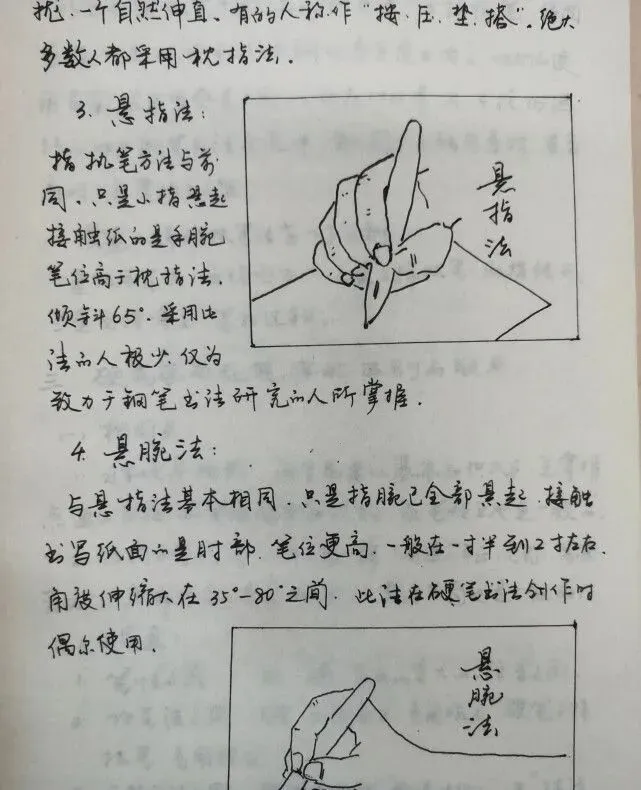 拢,一个自然伸直。有的人称作“按、压、垫、搭”。绝大
多数人都采用枕指法.
3. 悬指法:
指执笔方法与前
同、只是小指悬起
接触纸的是手腕
笔位高于枕指法.
倾斜65°.采用此
法的人极少.仅为
致力于钢笔书法研究的人所掌握.
悬指法
4. 悬腕法:
与悬指法基本相同.只是指腕已全部悬起.接触
书写纸面的是肘部.笔位更高.一般在一寸半到2寸左右.
角度伸缩大在35°-80°之间.此法在硬笔书法创作时
偶尔使用.
悬腕法